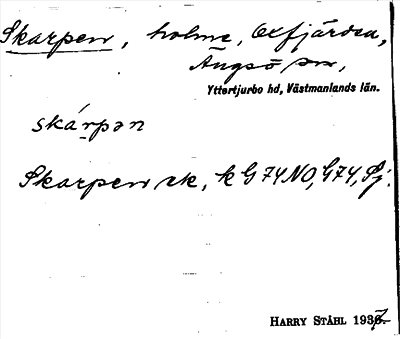 Skarpen, holme, Oxfjärden,
Ängsö sn,
Yttertjurbo hd, Västmanlands län.
skárpən
Skarpen rk, k G 74 NO, G 74, Sj.
HARRY STÅHL 1937.